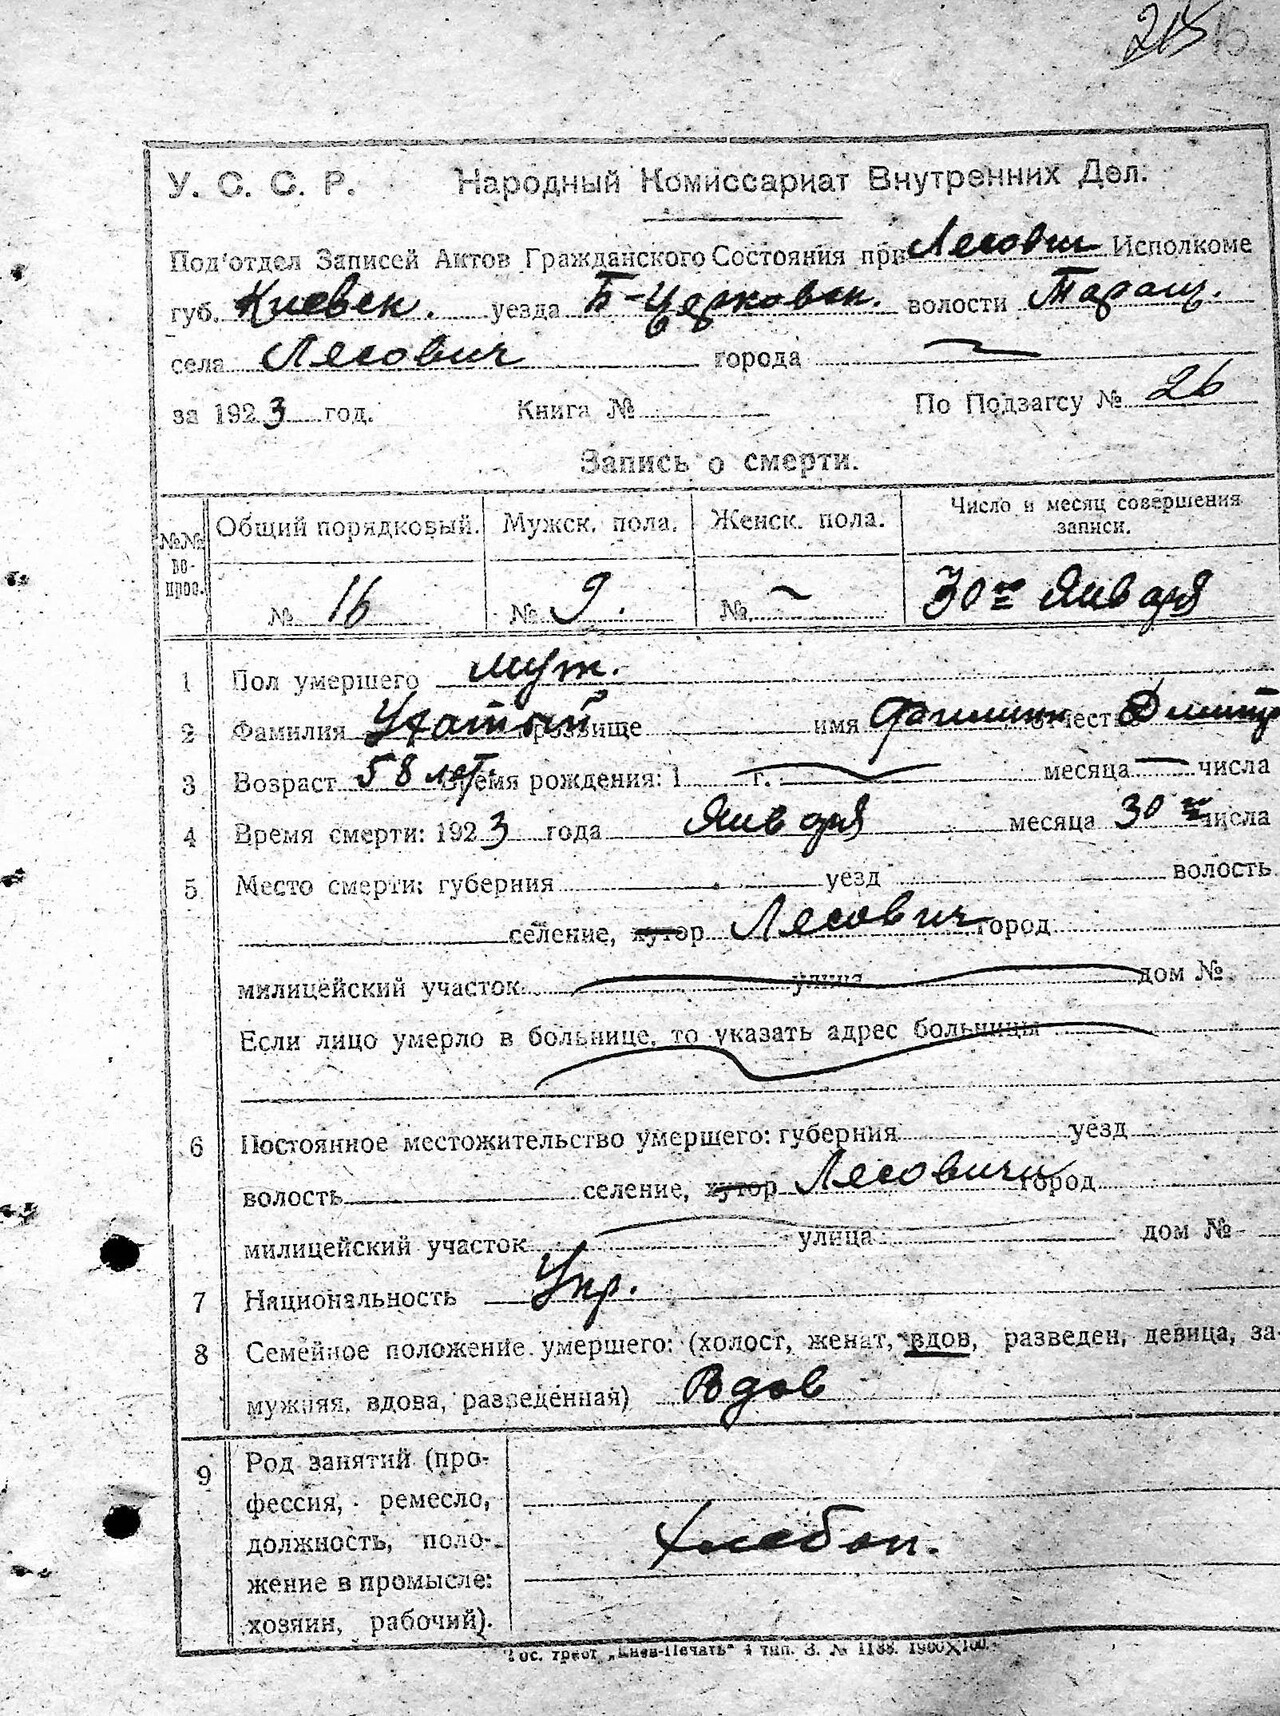 У. С. С. Р. Народный Комиссариат Внутренних Дел.
Под'отдел Записей Актов Гражданского Состояния при Лесович Исполкоме
губ. Киевск. уезда Б-Церковск. волости Таращ.
села Лесович города
за 1923 год. Книга № По Подзагсу № 26
Запись о смерти.
№№ вопрос. Общий порядковый. Мужск. пола. Женск. пола. Число и месяц совершения записи.
№ 16 № 9. № 30го Января
1 Пол умершего муж.
2 Фамилия прозвище имя отчест Дмитр
3 Возраст 58 лет Время рождения: 1 г. месяца числа
4 Время смерти: 1923 года Января месяца 30го числа
5 Место смерти: губерния уезд волость
селение, хутор Лесович город
милицейский участок улица дом №
Если лицо умерло в больнице, то указать адрес больницы
6 Постоянное местожительство умершего: губерния уезд
волость селение, хутор Лесовичи город
милицейский участок улица дом №
7 Национальность Укр.
8 Семейное положение умершего: (холост, женат, вдов, разведен, девица, за-
мужняя, вдова, разведенная) Вдов
9 Род занятий (про-
фессия, ремесло,
должность, поло-
жение в промысле:
хозяин, рабочий).
Хлебоп.
Гос. трест „Киев-Печать“ 4 тип. З. № 1138. 1900Х100.